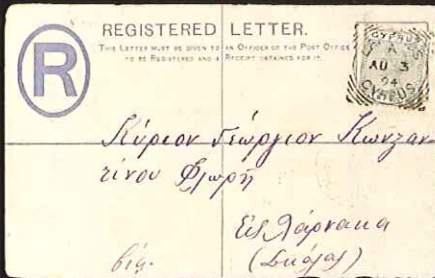 REGISTERED LETTER.
THIS LETTER MUST BE GIVEN TO AN OFFICER OF THE POST OFFICE
TO BE REGISTERED AND A RECEIPT OBTAINED FOR IT.
R
CYPRUS
A
AU 3
94
CYPRUS
Κύριον Γεώργιον Κωνζαν-
τίνου Φλωρῆ
Εἰς Λάρνακα
(Σκάλας)